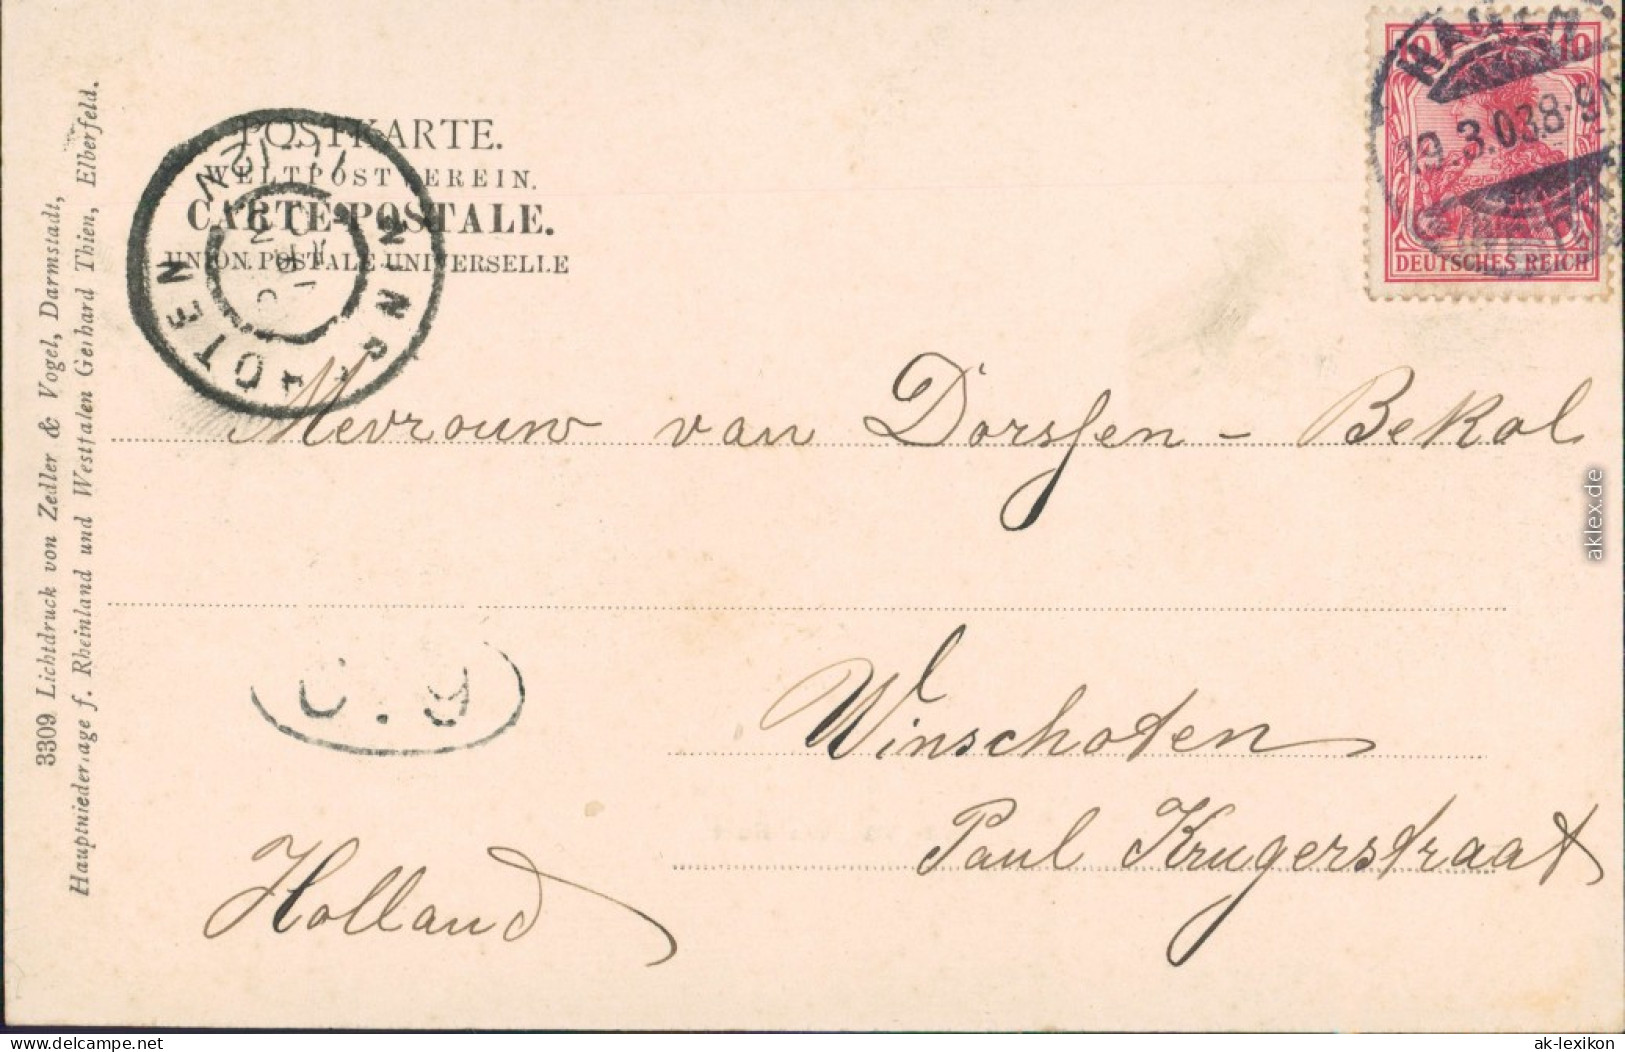 POSTKARTE.
WELTPOSTVEREIN.
CARTE POSTALE.
UNION POSTALE UNIVERSELLE
10 10
DEUTSCHES REICH
HAGEN
19.3.03.8-9
WINSCHOTEN
11-12 V
Mevrouw van Dorssen - Bekol
C. 9
Winschoten
Paul Krugerstraat
Holland
3309 Lichtdruck von Zedler & Vogel, Darmstadt,
Hauptniederlage f. Rheinland und Westfalen Gerhard Thien, Elberfeld.
aklex.de
delcampe.net
ak-lexikon